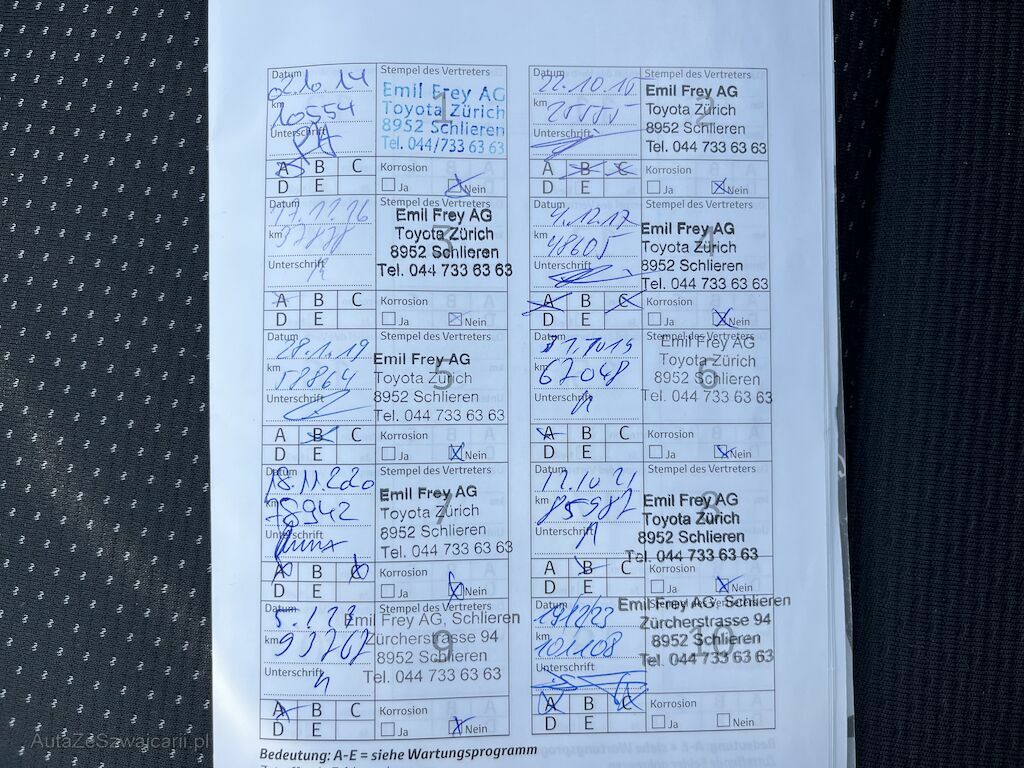 Datum
02.10.14
Stempel des Vertreters
km
10554
Unterschrift
Emil Frey AG
Toyota Zürich
8952 Schlieren
Tel. 044/733 63 63
1
A B C
D E
Korrosion
Ja Nein
Datum
22.10.15
Stempel des Vertreters
km
25555
Unterschrift
Emil Frey AG
Toyota Zürich
8952 Schlieren
Tel. 044 733 63 63
2
A B C
D E
Korrosion
Ja Nein
Datum
Stempel des Vertreters
km
Unterschrift
Emil Frey AG
Toyota Zürich
8952 Schlieren
Tel. 044 733 63 63
3
A B C
D E
Korrosion
Ja Nein
Datum
4.12.17
Stempel des Vertreters
km
48605
Unterschrift
Emil Frey AG
Toyota Zürich
8952 Schlieren
Tel. 044 733 63 63
4
A B C
D E
Korrosion
Ja Nein
Datum
28.1.19
Stempel des Vertreters
km
58864
Unterschrift
Emil Frey AG
Toyota Zürich
8952 Schlieren
Tel. 044 733 63 63
5
A B C
D E
Korrosion
Ja Nein
Datum
Stempel des Vertreters
km
67048
Unterschrift
Emil Frey AG
Toyota Zürich
8952 Schlieren
Tel. 044 733 63 63
6
A B C
D E
Korrosion
Ja Nein
Datum
18.11.2020
Stempel des Vertreters
km
78942
Unterschrift
Emil Frey AG
Toyota Zürich
8952 Schlieren
Tel. 044 733 63 63
7
A B C
D E
Korrosion
Ja Nein
Datum
Stempel des Vertreters
km
85987
Unterschrift
Emil Frey AG
Toyota Zürich
8952 Schlieren
Tel. 044 733 63 63
8
A B C
D E
Korrosion
Ja Nein
Datum
Stempel des Vertreters
km
93767
Unterschrift
Emil Frey AG, Schlieren
Zürcherstrasse 94
8952 Schlieren
Tel. 044 733 63 63
9
A B C
D E
Korrosion
Ja Nein
Datum
Stempel des Vertreters
km
101108
Unterschrift
Emil Frey AG, Schlieren
Zürcherstrasse 94
8952 Schlieren
Tel. 044 733 63 63
10
A B C
D E
Korrosion
Ja Nein
Bedeutung: A-E = siehe Wartungsprogramm
AutaZeSzwajcarii.pl